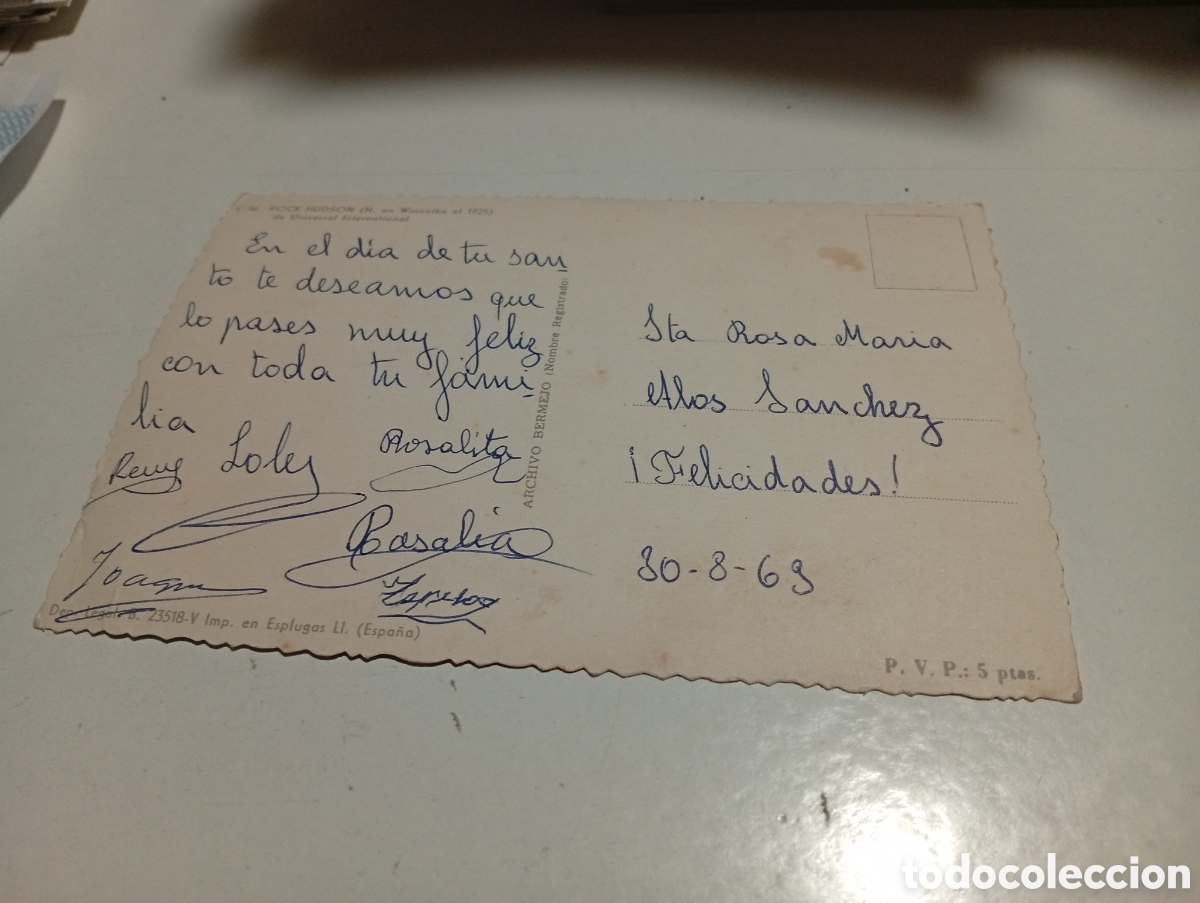 C-   ROCK HUDSON (N. en Winnetka el 1925)
de Universal International
En el dia de tu san-
to te deseamos que
lo pases muy feliz
con toda tu fami-
lia
Remy Loles Rosalita
Rosalia
Joaquin
ARCHIVO BERMEJO (Nombre Registrado)
Dep. Legal B. 23518-V Imp. en Esplugas Ll. (España)
Sta Rosa Maria
Alos Sanchez
¡Felicidades!
30-8-69
P. V. P.: 5 ptas.
todocoleccion